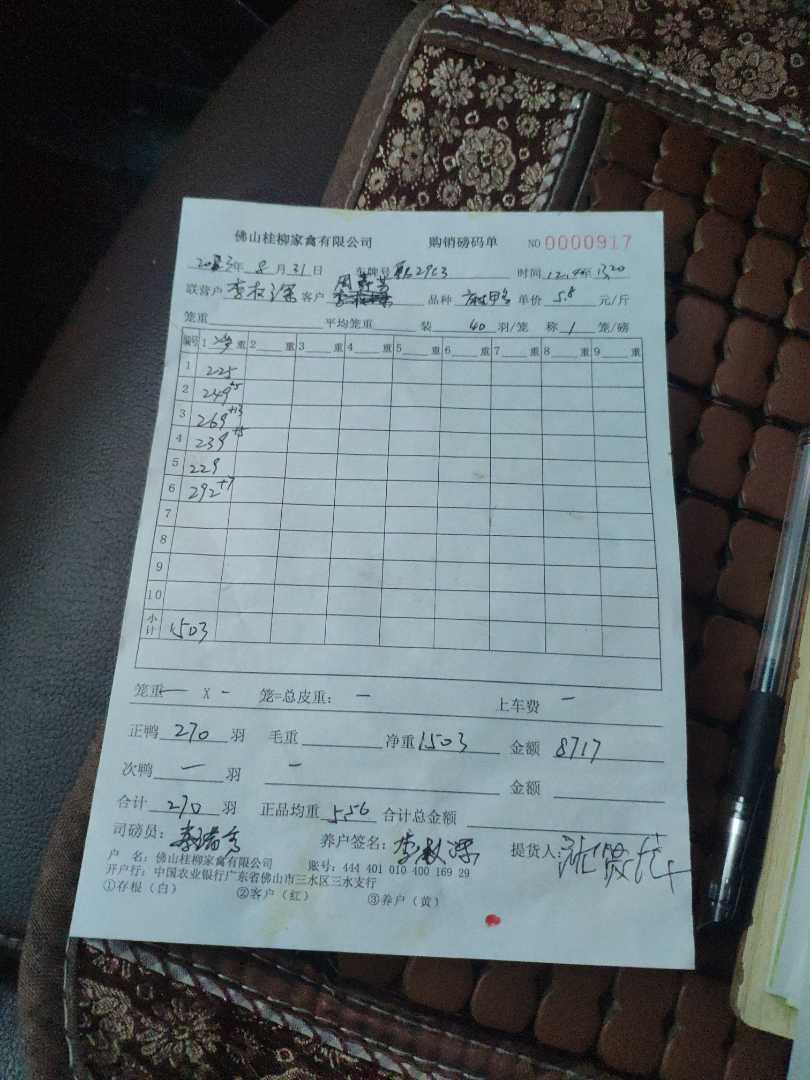 佛山桂柳家禽有限公司 购销磅码单 NO 0000917
2023年 8月31日 车牌号 2963 时间
联营户 客户 品种 麻鸭 单价 5.8 元/斤
笼重 平均笼重 装 40 羽/笼 称 1 笼/磅
编号 1 净 重 2 重 3 重 4 重 5 重 6 重 7 重 8 重 9 重
1 225
2 249+5
3 269+13
4 239
5 229
6 292+7
7
8
9
10
小计 1503
笼重 — X — 笼=总皮重: — 上车费 —
正鸭 270 羽 毛重 净重 1503 金额 8717
次鸭 — 羽 — 金额
合计 270 羽 正品均重 556 合计总金额
司磅员: 养户签名: 提货人:
户 名: 佛山桂柳家禽有限公司 账号: 444 401 010 400 169 29
开户行: 中国农业银行广东省佛山市三水区三水支行
①存根（白） ②客户（红） ③养户（黄）